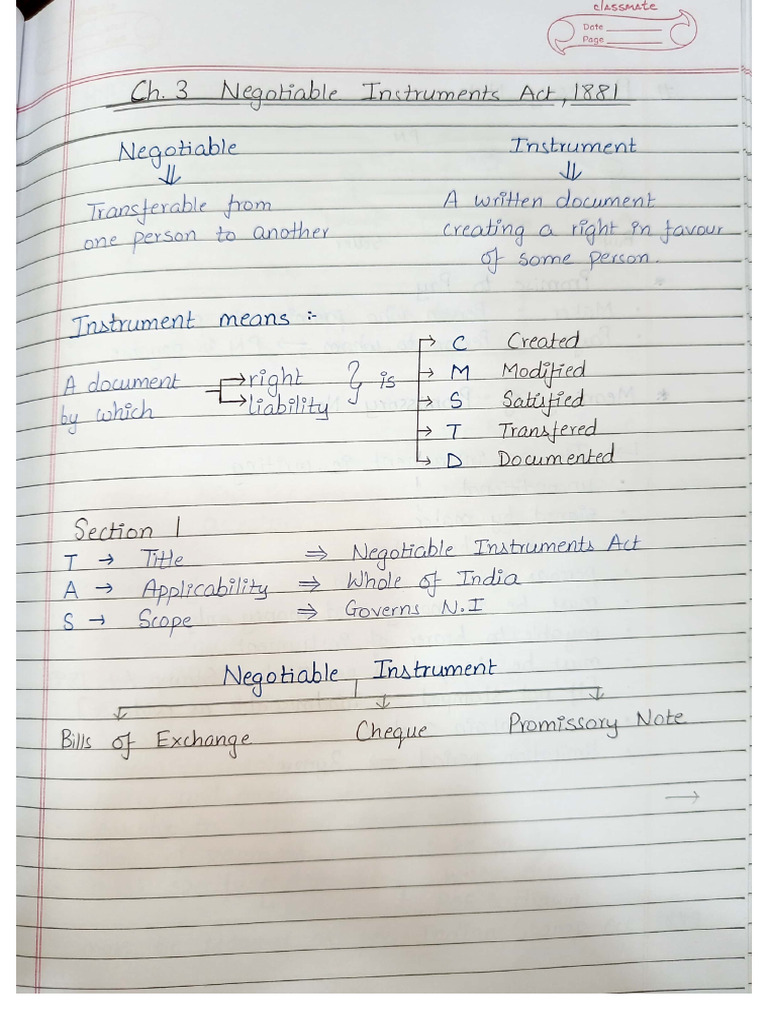 classmate
Date
Page
Ch. 3 Negotiable Instruments Act, 1881
Negotiable Instrument
⇓ ⇓
Transferable from A written document
one person to another creating a right in favour
of some person.
Instrument means :-
C Created
A document → right } is → M Modified
by which → liability → S Satisfied
→ T Transfered
→ D Documented
Section 1
T → Title ⇒ Negotiable Instruments Act
A → Applicability ⇒ Whole of India
S → Scope ⇒ Governs N.I
Negotiable Instrument
Bills of Exchange Cheque Promissory Note
→